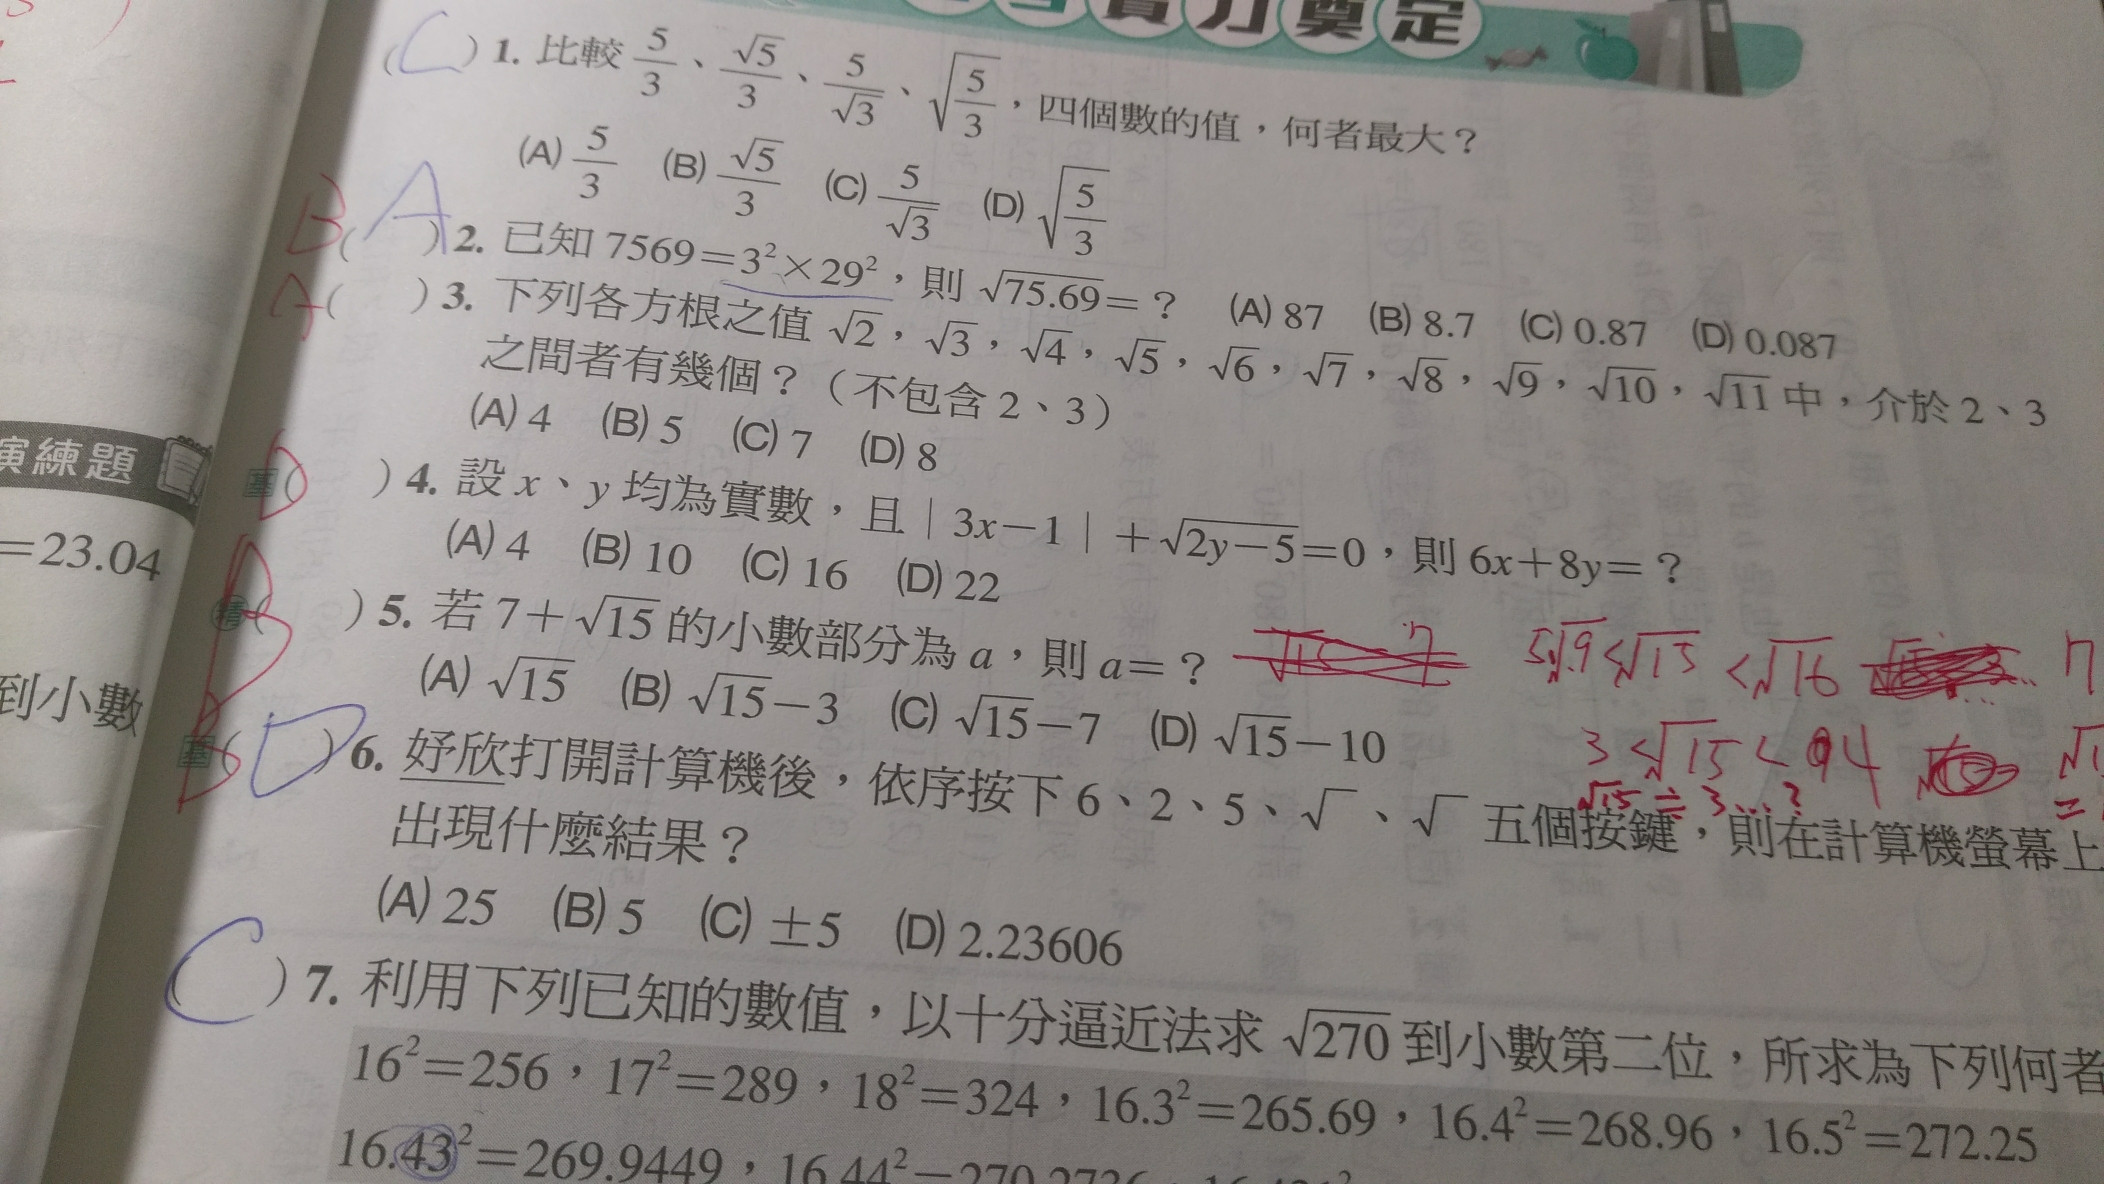 實力奠定
(C) 1. 比較 5/3、√5/3、5/√3、√(5/3)，四個數的值，何者最大？
(A) 5/3 (B) √5/3 (C) 5/√3 (D) √(5/3)
B( A ) 2. 已知 7569＝3²×29²，則 √75.69＝？ (A) 87 (B) 8.7 (C) 0.87 (D) 0.087
A( ) 3. 下列各方根之值 √2，√3，√4，√5，√6，√7，√8，√9，√10，√11 中，介於 2、3
之間者有幾個？（不包含 2、3）
(A) 4 (B) 5 (C) 7 (D) 8
基( D ) 4. 設 x、y 均為實數，且｜3x－1｜＋√(2y－5)＝0，則 6x＋8y＝？
(A) 4 (B) 10 (C) 16 (D) 22
精( B ) 5. 若 7＋√15 的小數部分為 a，則 a＝？
√9 < √15 < √16
(A) √15 (B) √15－3 (C) √15－7 (D) √15－10
3 < √15 < 4
√15 ≒ 3...?
基( D ) 6. 妤欣打開計算機後，依序按下 6、2、5、√ 、√ 五個按鍵，則在計算機螢幕上
出現什麼結果？
(A) 25 (B) 5 (C) ±5 (D) 2.23606
(C) 7. 利用下列已知的數值，以十分逼近法求 √270 到小數第二位，所求為下列何者
16²＝256，17²＝289，18²＝324，16.3²＝265.69，16.4²＝268.96，16.5²＝272.25
16.43²＝269.9449，16.44²＝270.2736
演練題
＝23.04
到小數